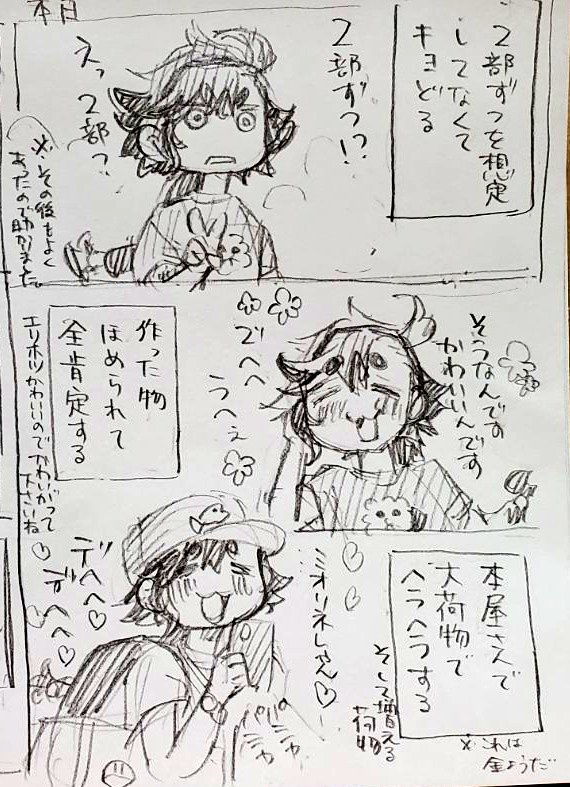 本日
2部ずつを想定
してなくて
キョどる
2部ずつ!?
えっ 2部っ?
※その後もよく
あったので助かりました。
そうなんです
かわいいんです
でへへ
うへぇ
作った物
ほめられて
全肯定する
エリホツかわいいのでかわいがって
下さいね♡
本屋さんで
大荷物で
ヘラヘラする
ミオリネしゃん♡
デヘヘ♡
デヘヘ♡
そして増える
荷物
※これは
金ようだ